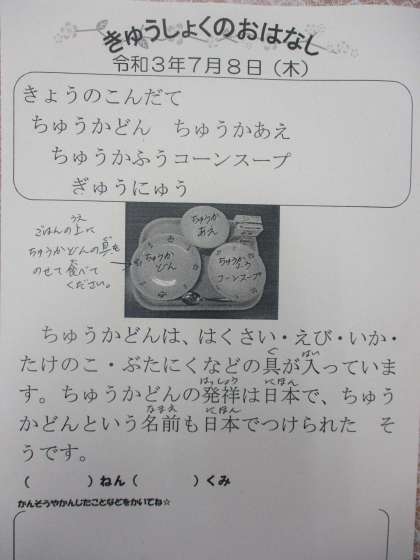 きゅうしょくのおはなし
令和3年7月8日（木）
きょうのこんだて
ちゅうかどん　ちゅうかあえ
ちゅうかふうコーンスープ
ぎゅうにゅう
うえ
ごはんの上に
ちゅうかどんの具を
のせて食べて
ください。
ちゅうか
あえ
ちゅうか
どん
ちゅうか
コーンスープ
ちゅうかどんは、はくさい・えび・いか・
ぐ　はい
たけのこ・ぶたにくなどの具が入っていま
はっしょう　にほん
す。ちゅうかどんの発祥は日本で、ちゅう
なまえ　にほん
かどんという名前も日本でつけられた　そ
うです。
（　　　　）ねん（　　　　）くみ
かんそうやかんじたことなどをかいてね☆